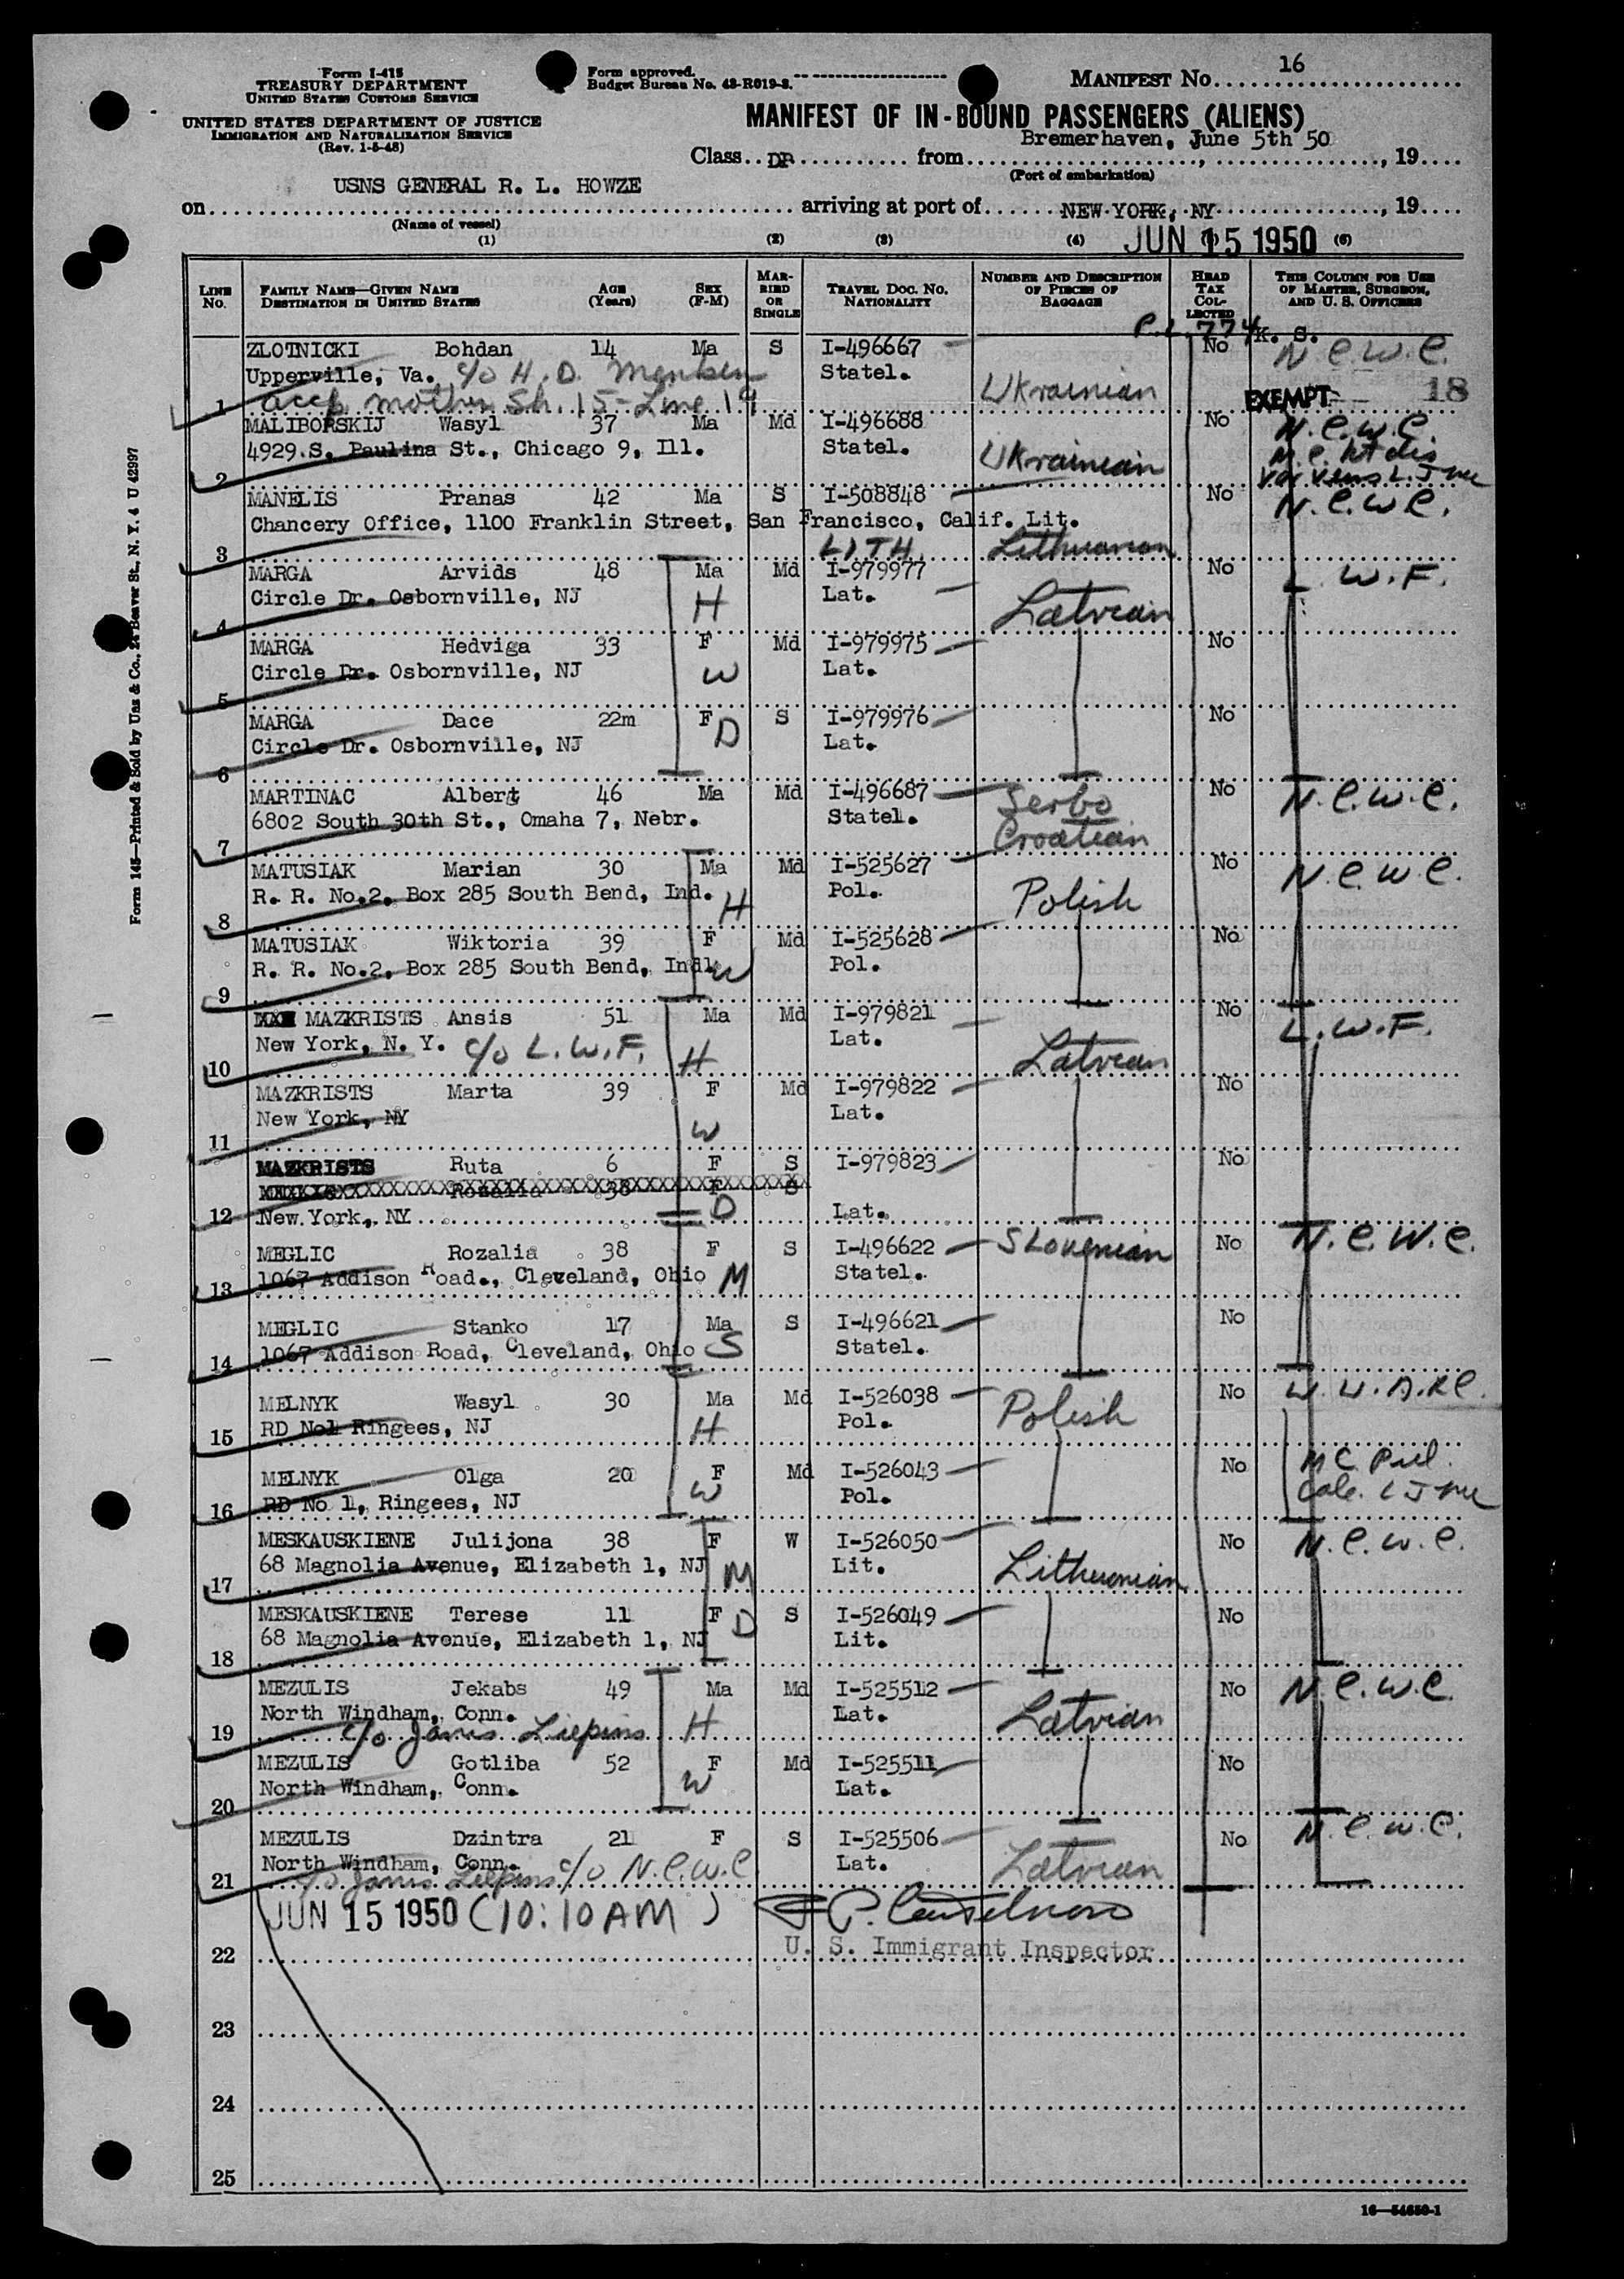 Form I-415
TREASURY DEPARTMENT
UNITED STATES CUSTOMS SERVICE
UNITED STATES DEPARTMENT OF JUSTICE
IMMIGRATION AND NATURALIZATION SERVICE
(Rev. 1-5-48)
Form approved.
Budget Bureau No. 43-R019-3.
MANIFEST No. 16
MANIFEST OF IN-BOUND PASSENGERS (ALIENS)
Class DP from Bremerhaven, June 5th 50, 19
(Port of embarkation)
on USNS GENERAL R. L. HOWZE arriving at port of NEW YORK, NY, 19
(Name of vessel)
JUN 15 1950
(1) (2) (3) (4) (6)
LINE No. FAMILY NAME—GIVEN NAME DESTINATION IN UNITED STATES AGE (Years) SEX (F-M) MARRIED OR SINGLE TRAVEL DOC. NO. NATIONALITY NUMBER AND DESCRIPTION OF PIECES OF BAGGAGE HEAD TAX COLLECTED THIS COLUMN FOR USE OF MASTER, SURGEON, AND U. S. OFFICERS
P.L. 774 K. S.
ZLOTNICKI Bohdan 14 Ma S I-496667 No N.C.W.C.
Upperville, Va. c/o H. D. Statel. Ukrainian
1 accp mother Sh. 15-Line 19 EXEMPT 18
MALIBORSKIJ Wasyl 37 Ma Md I-496688 No N.C.W.C.
4929 S. Paulina St., Chicago 9, Ill. Statel. Ukrainian
2
MANELIS Pranas 42 Ma S I-508848 No N.C.W.C.
Chancery Office, 1100 Franklin Street, San Francisco, Calif. Lit.
3 LITH Lithuanian
MARGA Arvids 48 Ma Md I-979977 No L.W.F.
Circle Dr. Osbornville, NJ H Lat. Latvian
4
MARGA Hedviga 33 F Md I-979975 No
Circle Dr. Osbornville, NJ W Lat.
5
MARGA Dace 22m F S I-979976 No
Circle Dr. Osbornville, NJ D Lat.
6
MARTINAC Albert 46 Ma Md I-496687 Serbo No N.C.W.C.
6802 South 30th St., Omaha 7, Nebr. Statel. Croatian
7
MATUSIAK Marian 30 Ma Md I-525627 No N.C.W.C.
R. R. No.2, Box 285 South Bend, Ind. H Pol. Polish
8
MATUSIAK Wiktoria 39 F Md I-525628 No
R. R. No.2, Box 285 South Bend, Ind. W Pol.
9
MAZKRISTS Ansis 51 Ma Md I-979821 No L.W.F.
New York, N. Y. c/o L.W.F. H Lat. Latvian
10
MAZKRISTS Marta 39 F Md I-979822 No
New York, NY W Lat.
11
MAZKRISTS Ruta 6 F S I-979823 No
12 New York, NY D Lat.
MEGLIC Rozalia 38 F S I-496622 Slovenian No N.C.W.C.
1067 Addison Road., Cleveland, Ohio M Statel.
13
MEGLIC Stanko 17 Ma S I-496621 No
1067 Addison Road, Cleveland, Ohio S Statel.
14
MELNYK Wasyl 30 Ma Md I-526038 No
RD No1 Ringees, NJ H Pol. Polish
15
MELNYK Olga 20 F Md I-526043 No
RD No 1, Ringees, NJ W Pol.
16
MESKAUSKIENE Julijona 38 F W I-526050 No N.C.W.C.
68 Magnolia Avenue, Elizabeth 1, NJ M Lit. Lithuanian
17
MESKAUSKIENE Terese 11 F S I-526049 No
68 Magnolia Avenue, Elizabeth 1, NJ D Lit.
18
MEZULIS Jekabs 49 Ma Md I-525512 No N.C.W.C.
North Windham, Conn. H Lat. Latvian
19 c/o Janis Liepins
MEZULIS Gotliba 52 F Md I-525511 No
North Windham, Conn. W Lat.
20
MEZULIS Dzintra 21 F S I-525506 No N.C.W.C.
North Windham, Conn. Lat. Latvian
21 c/o Janis Liepins c/o N.C.W.C.
JUN 15 1950 (10:10 AM)
U. S. Immigrant Inspector
22
23
24
25
16—54650-1
Form 145—Printed & Sold by Unz & Co., 24 Beaver St., N. Y. 4 U 42997